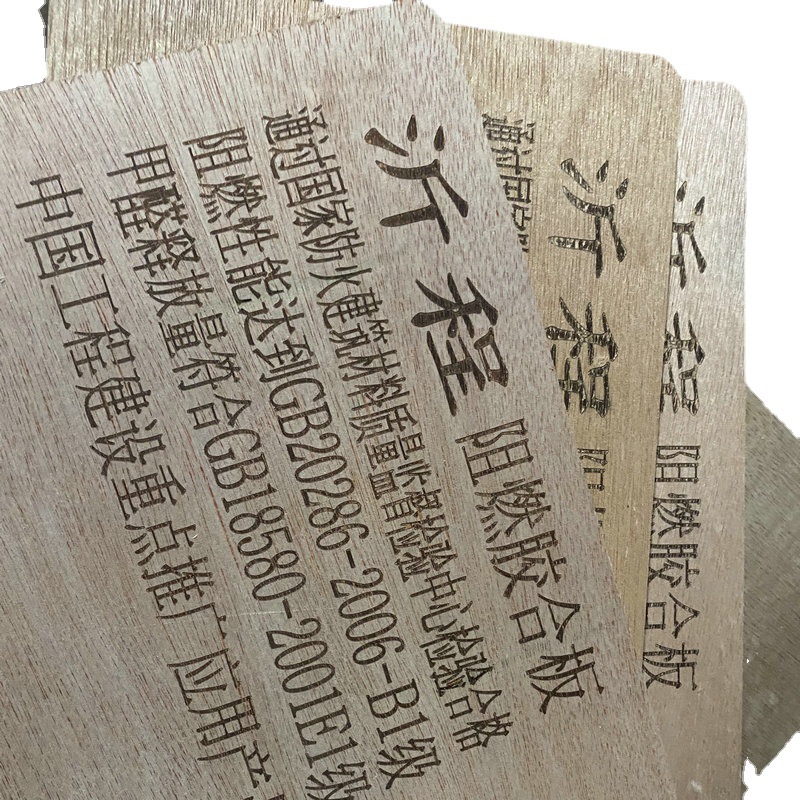 沂程 阻燃胶合板
通过国家防火建筑材料质量监督检验中心检验合格
阻燃性能达到GB20286-2006-B1级
甲醛释放量符合GB18580-2001E1级
中国工程建设重点推广应用产
沂程 阻
通过国家
沂程 阻燃胶合板